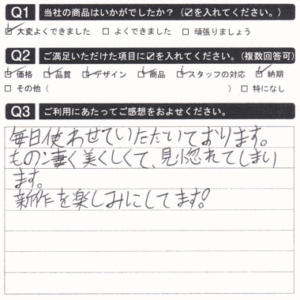 Q1 当社の商品はいかがでしたか？（☑を入れてください。）
☑大変よくできました □よくできました □頑張りましょう
Q2 ご満足いただけた項目に☑を入れてください。（複数回答可）
☑価格 ☑品質 ☑デザイン ☑商品 ☑スタッフの対応 ☑納期
□その他（ ） □特になし
Q3 ご利用にあたってご感想をおよせください。
毎日使わせていただいております。
もの凄く美しくしくて、見惚れてしまい
ます。
新作を楽しみにしてます!